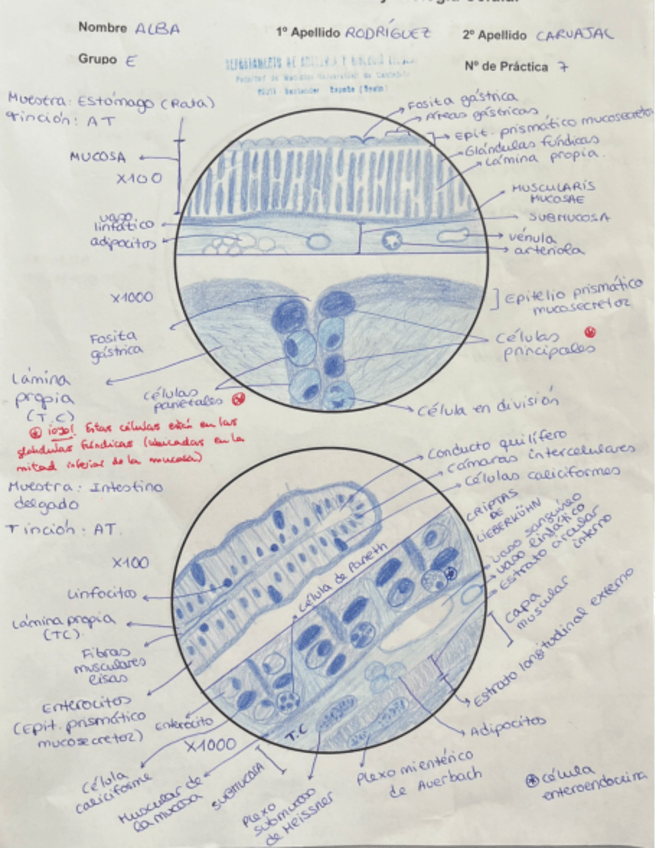 Nombre ALBA
1º Apellido RODRÍGUEZ
2º Apellido CARVAJAL
Grupo E
Nº de Práctica 7
Muestra: Estómago (Rata)
Tinción: AT
MUCOSA
X100
vaso
linfático
adipocitos
Fosita gástrica
Áreas gástricas
Epit. prismático mucosecretor
Glándulas fúndicas
Lámina propia.
MUSCULARIS
MUCOSAE
SUBMUCOSA
vénula
arteriola
X1000
Fosita
gástrica
Lámina
propia
(T.C)
Células
parietales
Epitelio prismático
mucosecretor
Células
principales
Célula en división
¡ojo! Estas células están en las
glándulas fúndicas (ubicadas en la
mitad inferior de la mucosa)
Muestra: Intestino
delgado
Tinción: AT.
X100
Linfocitos
Lámina propia
(TC)
Fibras
musculares
lisas
Enterocitos
(Epit. prismático
mucosecretor)
Conducto quilífero
Cámaras intercelulares
Células caliciformes
CRIPTAS
DE
LIEBERKÜHN
Vaso sanguíneo
Vaso linfático
Estrato circular
interno
Capa
muscular
Estrato longitudinal externo
Célula de Paneth
Enterocito
X1000
Célula
caliciforme
Muscular de
la mucosa
T.C
SUBMUCOSA
Plexo
submucoso
de Meissner
Plexo mientérico
de Auerbach
Adipocitos
célula
enteroendocrina